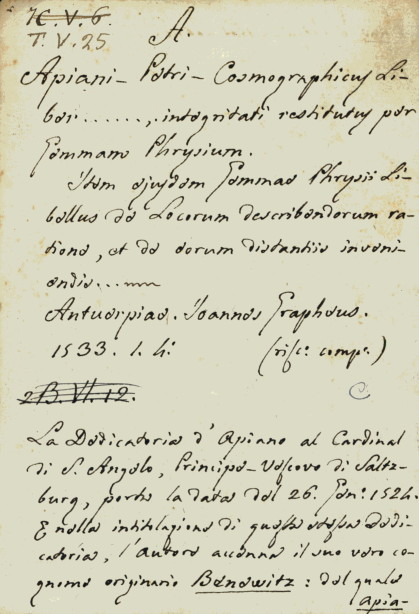 K. V. 6.
T. V. 25
A.
Apiani - Petri - Cosmographicus Li-
ber ......, integritati restitutus per
Gemmam Phrysium.
Item ejusdem Gemmae Phrysii Li-
bellus de Locorum describendorum ra-
tione, et de eorum distantiis inveni-
endis...
Antuerpiae. Joannes Grapheus.
1533. 1. 4.
(risc.e comp.e)
2 B. VI. 12.
C
La Dedicatoria d'Apiano al Cardinal
di S. Angelo, Principe-Vescovo di Saltz-
burg, porta la data del 26. Gen.o 1524.
E nella intitolazione di questa stessa dedi-
catoria, l'autore accenna il suo vero co-
gnome originario Benewitz: del quale
Apia-